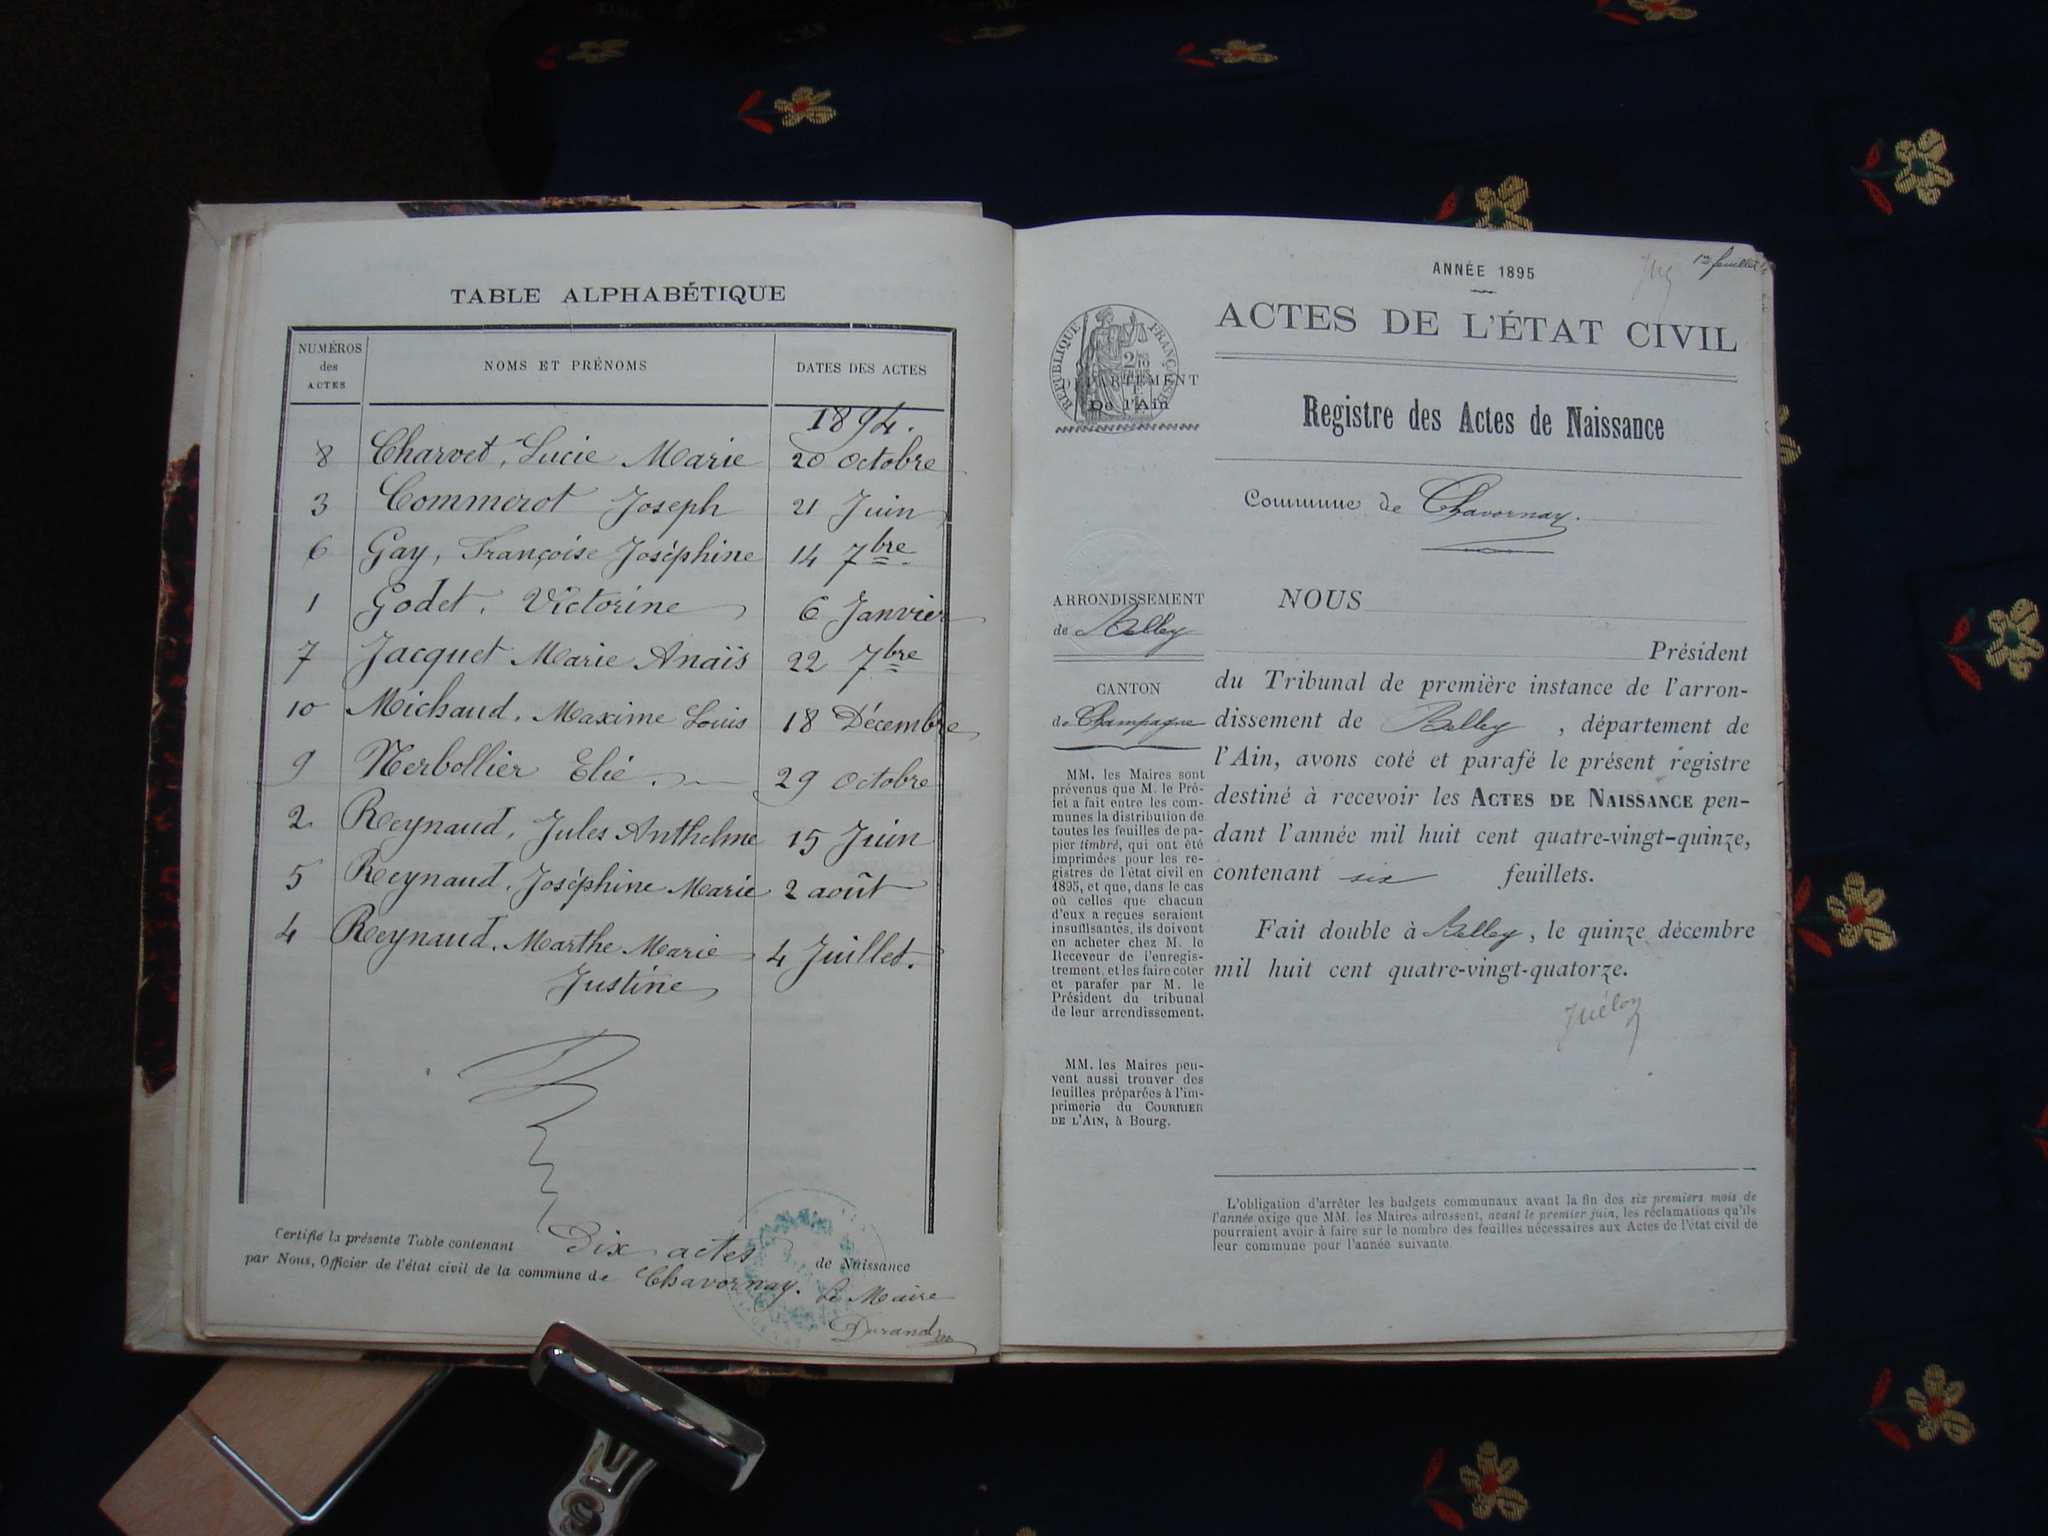 TABLE ALPHABÉTIQUE
NUMÉROS des ACTES NOMS ET PRÉNOMS DATES DES ACTES
1894.
8 Charvet, Lucie Marie 20 Octobre
3 Commerot Joseph 21 Juin
6 Gay, Françoise Joséphine 14 7bre
1 Godet, Victorine 6 Janvier
7 Jacquet Marie Anaïs 22 7bre
10 Michaud, Maxime Louis 18 Décembre
9 Nerbollier Elié. 29 Octobre
2 Reynaud, Jules Anthelme 15 Juin
5 Reynaud, Joséphine Marie 2 août
4 Reynaud, Marthe Marie 4 Juillet.
Justine
Certifié la présente Table contenant Dix actes de Naissance
par Nous, Officier de l'état civil de la commune de Chavornay. Le Maire
Durand
1er feuillet
ANNÉE 1895
ACTES DE L'ÉTAT CIVIL
RÉPUBLIQUE FRANÇAISE
DÉPARTEMENT
De l'Ain
Registre des Actes de Naissance
Commune de Chavornay.
ARRONDISSEMENT
de Belley
CANTON
de Champagne
MM. les Maires sont
prévenus que M. le Pré-
fet a fait entre les com-
munes la distribution de
toutes les feuilles de pa-
pier timbré, qui ont été
imprimées pour les re-
gistres de l'état civil en
1895, et que, dans le cas
où celles que chacun
d'eux a reçues seraient
insuffisantes, ils doivent
en acheter chez M. le
Receveur de l'enregis-
trement et les faire coter
et parafer par M. le
Président du tribunal
de leur arrondissement.
MM. les Maires peu-
vent aussi trouver des
feuilles préparées à l'im-
primerie du COURRIER
DE L'AIN, à Bourg.
NOUS
Président
du Tribunal de première instance de l'arron-
dissement de Belley, département de
l'Ain, avons coté et parafé le présent registre
destiné à recevoir les ACTES DE NAISSANCE pen-
dant l'année mil huit cent quatre-vingt-quinze,
contenant six feuillets.
Fait double à Belley, le quinze décembre
mil huit cent quatre-vingt-quatorze.
L'obligation d'arrêter les budgets communaux avant la fin des six premiers mois de
l'année exige que MM. les Maires adressent, avant le premier juin, les réclamations qu'ils
pourraient avoir à faire sur le nombre des feuilles nécessaires aux Actes de l'état civil de
leur commune pour l'année suivante.